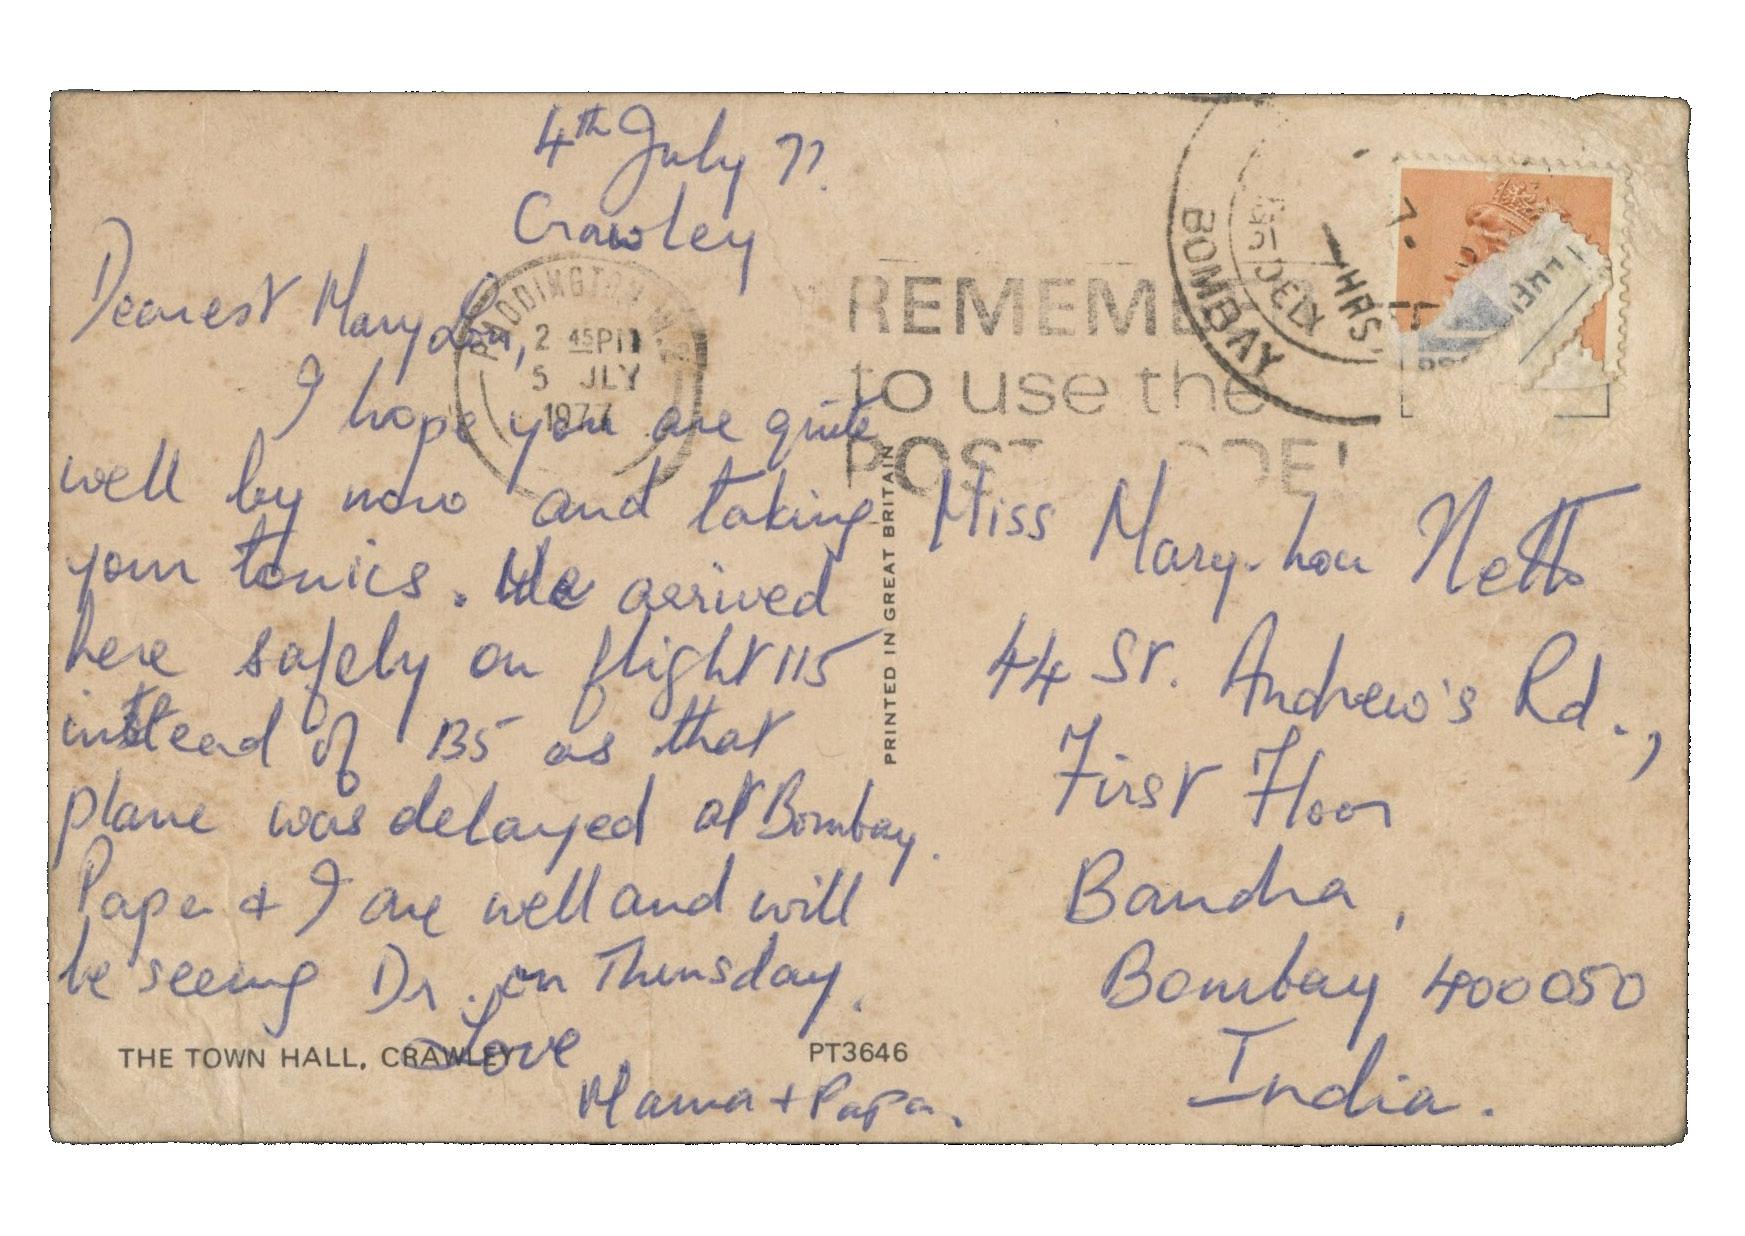 4th July 77.
Crawley
Dearest Mary Lou,
I hope you are quite
well by now and taking
your tonics. We arrived
here safely on flight 115
instead of 135 as that
plane was delayed at Bombay.
Papa & I are well and will
be seeing Dr. on Thursday.
Love
Mama + Papa.
THE TOWN HALL, CRAWLEY
PT3646
PRINTED IN GREAT BRITAIN
PADDINGTON
2 45PM
5 JLY
1977
REMEME
to use the
POST
BOMBAY
DELY
7 HRS
Miss Mary-Lou Netto
44 St. Andrew's Rd.,
First Floor
Bandra,
Bombay 400050
India.